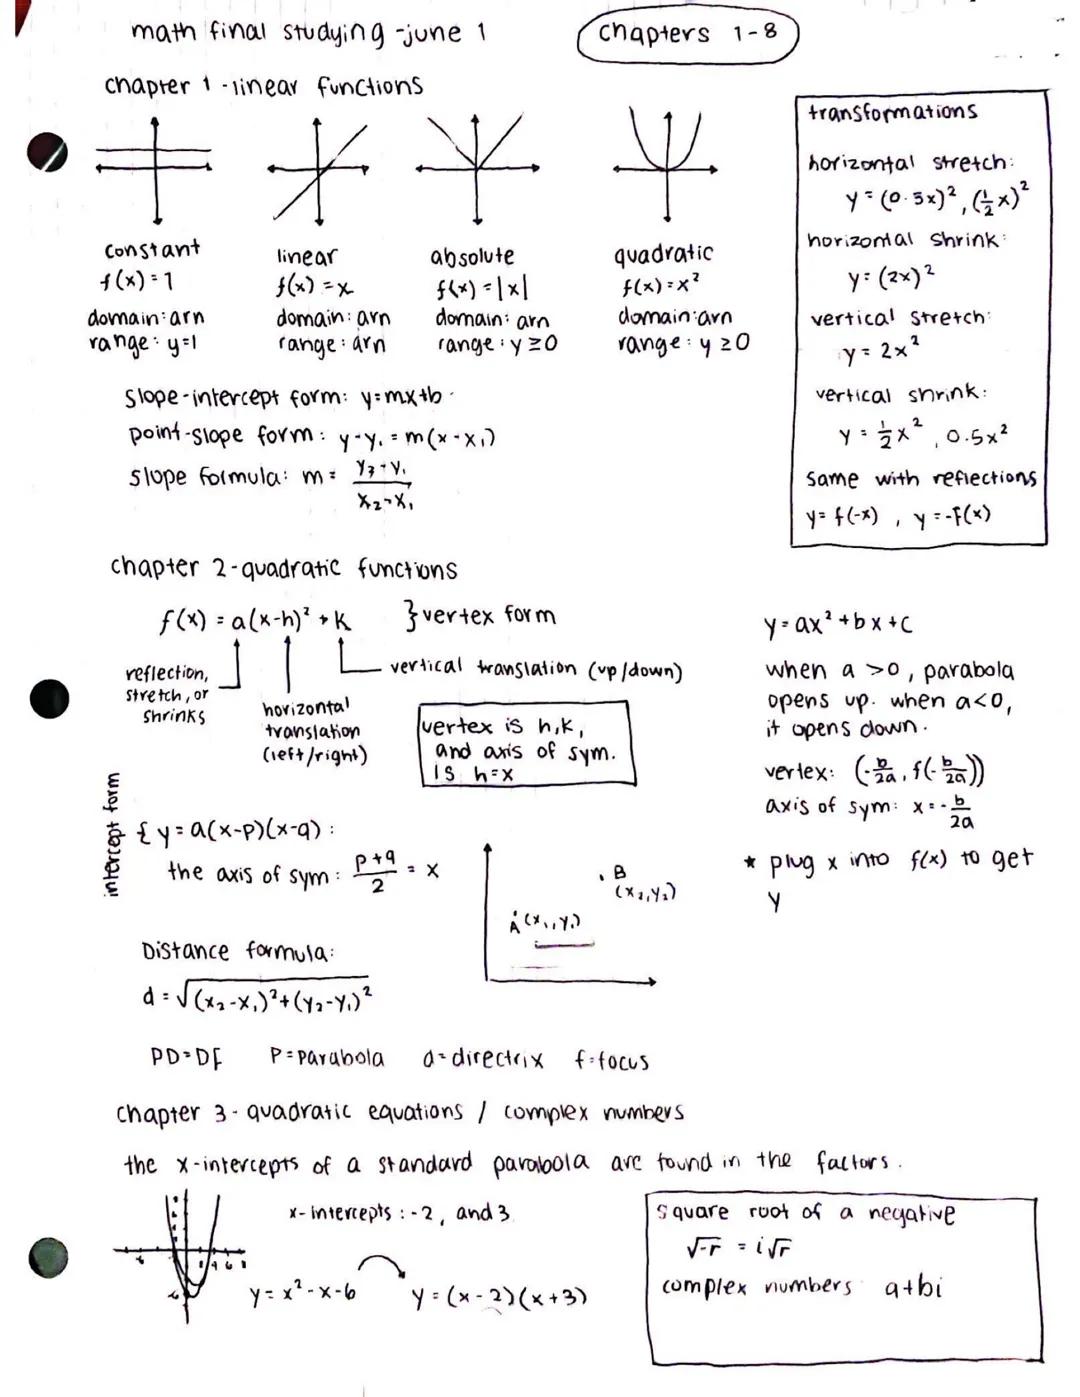 math final studying - june 1
chapters 1-8
chapter 1 - linear functions
constant
f(x) = 1
domain: arn
range: y=1
linear
f(x) = x
domain: arn
range: arn
absolute
f(x) = |x|
domain: arn
range: y ≥ 0
quadratic
f(x) = x²
domain: arn
range: y ≥ 0
transformations
horizontal stretch:
y = (0.5x)², (½x)²
horizontal shrink:
y = (2x)²
vertical stretch:
y = 2x²
vertical shrink:
y = ½x², 0.5x²
same with reflections
y = f(-x), y = -f(x)
slope-intercept form: y=mx+b
point-slope form: y-y₁ = m(x-x₁)
slope formula: m = (y₂-y₁)/(x₂-x₁)
chapter 2 - quadratic functions
f(x) = a(x-h)² + k } vertex form
reflection,
stretch, or
shrinks
horizontal
translation
(left/right)
vertical translation (up/down)
vertex is h,k,
and axis of sym.
is h=x
y = ax² + bx + c
when a > 0, parabola
opens up. when a<0,
it opens down.
vertex: (-b/2a, f(-b/2a))
axis of sym: x = -b/2a
* plug x into f(x) to get
y
intercept form
{ y = a(x-p)(x-q):
the axis of sym: (p+q)/2 = x
A (x₁, y₁)
B
(x₂, y₂)
Distance formula:
d = √(x₂-x₁)²+(y₂-y₁)²
PD=DF P=parabola d=directrix f=focus
chapter 3 - quadratic equations / complex numbers
the x-intercepts of a standard parabola are found in the factors.
x-intercepts: -2, and 3
y = x² - x - 6
y = (x-2)(x+3)
square root of a negative
√-r = i√r
complex numbers a+bi